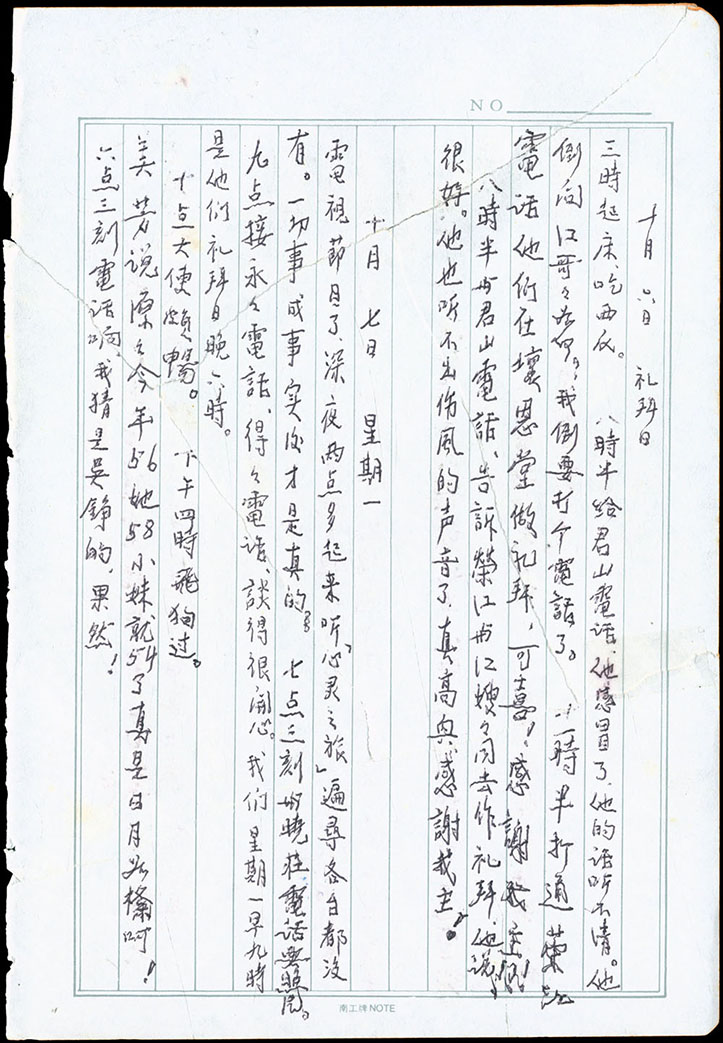 NO
十月 六日 礼拜日
三時起床、吃西瓜。 八時半给君山電話、他感冒了、他的话听不清。他
倒问江哥々如何，我倒要打个電話了。 十一時半打通荣江
電话他们在壞恩堂做礼拜，可喜！感謝我主！
八時半与君山電話、告訴榮江与江嫂々同去作礼拜、他说
很好。他也听不出伤風的声音了、真高興感謝我主！
十月 七日 星期一
電視節目了、深夜两点多起来听「心灵之旅」遍尋各台都没
有。一切事成事实後才是真的。 七点三刻与晓莊電话
九点接永々電話、得々電话、談得很開心。我们星期一早九時
是他们礼拜日晚六時。
十点大便頗暢。 下午四時飛狗过。
美芳说 今年56她58小妹就54了真是日月如梭呵！
六点三刻電话响、我猜是吴錚的、果然！
南工牌NOTE